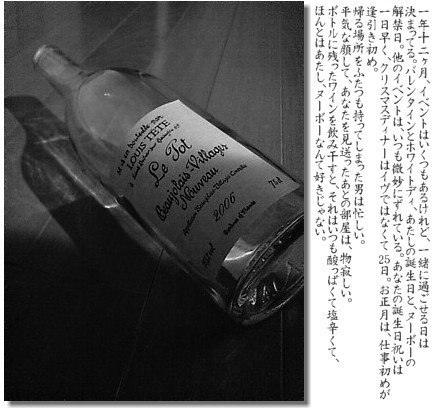 一年十二ヶ月、イベントはいくつもあるけれど、一緒に過ごせる日は
決まってる。バレンタインとホワイトデイ、あたしの誕生日と、ヌーボーの
解禁日。他のイベントは、いつも微妙にずれている。あなたの誕生日祝いは
一日早く、クリスマスディナーはイヴではなくて25日。お正月は、仕事初めが
逢引き初め。
帰る場所をふたつも持ってしまった男は忙しい。
平気な顔して、あなたを見送ったあとの部屋は、物寂しい。
ボトルに残ったワインを飲み干すと、それはいつも酸っぱくて塩辛くて、
ほんとはあたし、ヌーボーなんて好きじゃない。
mis en bouteille par
LOUIS TETE
Le Pot
Beaujolais-Villages
Nouveau
Appellation Beaujolais-Villages Contrôlée
2006
75cl